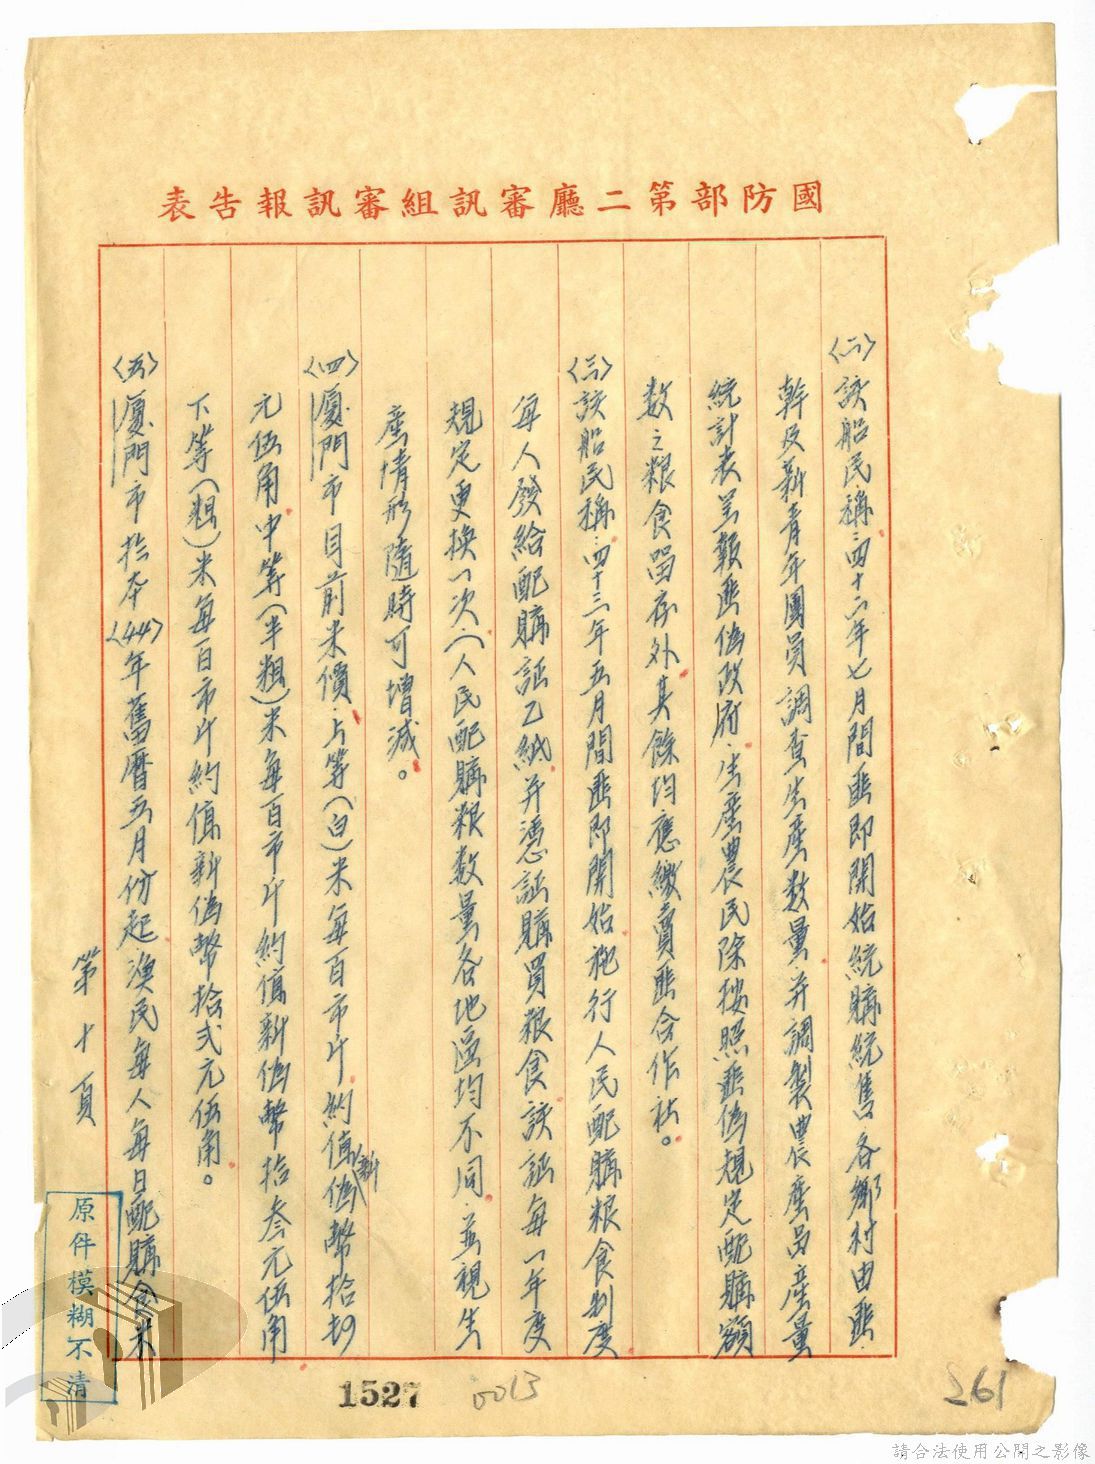 國防部第二廳審訊組審訊報告表
〈二〉該船民稱：四十二年七月間匪即開始統購統售．各鄉村由匪
幹及新青年團員調查生產数量．并調製農產品產量
統計表呈報匪偽政府．生產農民除按照匪偽規定配購額
数之粮食留存外其餘均應繳賣匪合作社。
〈三〉該船民稱：四十三年五月間匪即開始施行人民配購粮食制度
每人發給配購証乙紙并憑証購買粮食該証每一年度
規定更換一次（人民配購粮数量各地區均不同．並視生
產情形隨時可增減。
〈四〉厦門市目前米價．上等（白）米每百市斤約值新偽幣拾
元伍角中等（半粗）米每百市斤約值新偽幣拾叁元伍角
下等（粗）米每百市斤約值新偽幣拾弍元伍角。
〈五〉厦門市於本〈44〉年舊曆五月份起．漁民每人每日配購食米
第十頁
原件模糊不清
1527
0013
261
請合法使用公開之影像